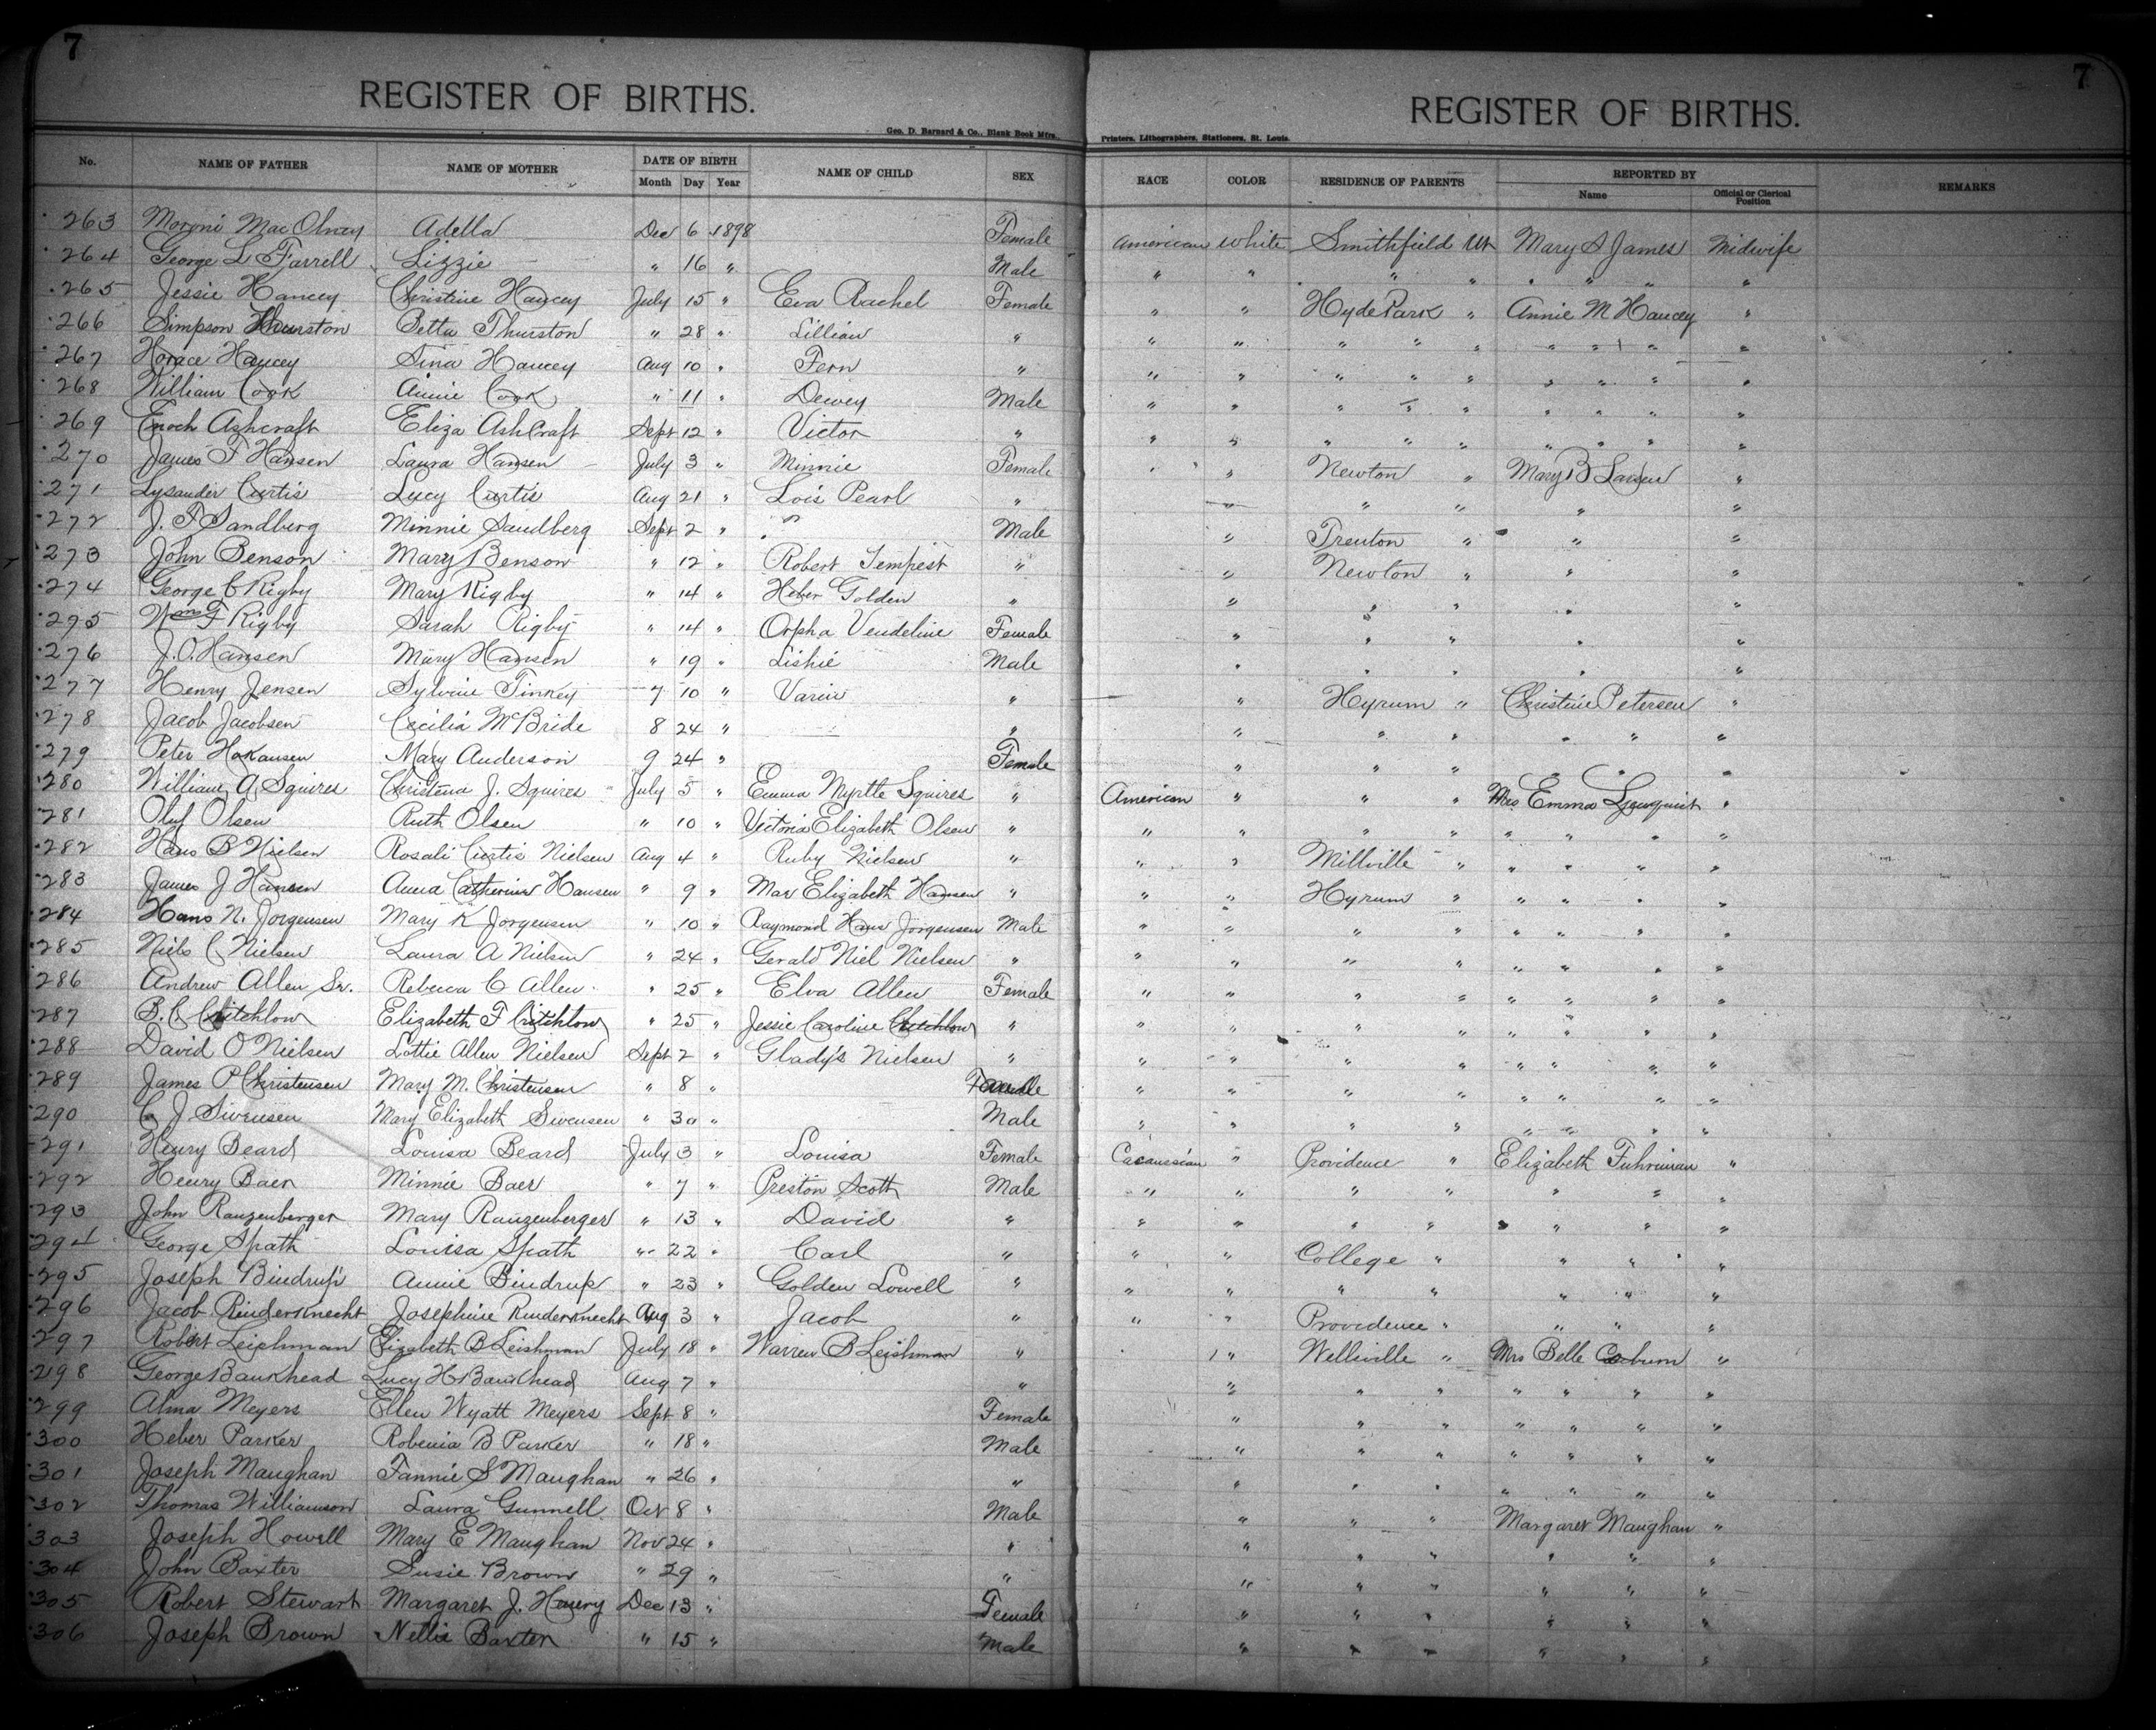 7
REGISTER OF BIRTHS.
Geo. D. Barnard & Co., Blank Book Mfrs.,
No. NAME OF FATHER NAME OF MOTHER DATE OF BIRTH Month Day Year NAME OF CHILD SEX
7
REGISTER OF BIRTHS.
Printers, Lithographers, Stationers, St. Louis.
RACE COLOR RESIDENCE OF PARENTS REPORTED BY Name Official or Clerical Position REMARKS
263 Moroni Mac Olney Adella Dec 6 1898 Female American White Smithfield Ut Mary S James Midwife
264 George L Farrell Lizzie " 16 " Male " " " " " " " "
265 Jessie Hancey Christine Hancey July 15 " Eva Rachel Female " " Hyde Park " Annie M Hancey "
266 Simpson Thurston Betta Thurston " 28 " Lillian " " " " " " " " " "
267 Horace Hancey Sina Hancey Aug 10 " Fern " " " " " " " " " "
268 William Cook Annie Cook " 11 " Dewey Male " " " " " " " " "
269 Enoch Ashcraft Eliza Ashcraft Sept 12 " Victor " " " " " " " " " "
270 James F Hansen Laura Hansen July 3 " Minnie Female " " Newton " Mary B Larsen "
271 Lysander Curtis Lucy Curtis Aug 21 " Lois Pearl " " " " "
272 J. F Sandberg Minnie Sandberg Sept 2 " Male " Trenton " " "
273 John Benson Mary Benson " 12 " Robert Tempest " " Newton " " "
274 George C Rigby Mary Rigby " 14 " Heber Golden " " " " " "
275 Wm F Rigby Sarah Rigby " 14 " Orpha Vendeline Female " " " " "
276 J. O. Hansen Mary Hansen " 19 " Lishie Male " " " " "
277 Henry Jensen Sylvine Tinkey 7 10 " Varin " " Hyrum " Christine Petersen "
278 Jacob Jacobsen Cecilia McBride 8 24 " " " " " " " "
279 Peter Hokansen Mary Anderson 9 24 " Female " " " " "
280 William A Squires Christena J. Squires July 5 " Emma Myrtle Squires " American " " " Mrs Emma Ljungquist "
281 Oluf Olsen Ruth Olsen " 10 " Victoria Elizabeth Olsen " " " " " " " " "
282 Hans B Nielsen Rosali Curtis Nielsen Aug 4 " Ruby Nielsen " " " Millville " " " " "
283 James J Hansen Anna Catherine Hansen " 9 " Mar Elizabeth Hansen " " " Hyrum " " " " "
284 Hans N. Jorgensen Mary K Jorgensen " 10 " Raymond Hans Jorgensen Male " " " " " " " "
285 Niels C Nielsen Laura A Nielsen " 24 " Gerald Niel Nielsen " " " " " " " " "
286 Andrew Allen Sr. Rebecca C Allen " 25 " Elva Allen Female " " " " " " " "
287 B. C Critchlow Elizabeth F Critchlow " 25 " Jessie Caroline Critchlow " " " " " " " " "
288 David O Nielsen Lottie Allen Nielsen Sept 2 " Glady's Nielsen " " " " " " " " "
289 James P Christensen Mary M. Christensen " 8 " " " " " " " " "
290 C J. Swensen Mary Elizabeth Swensen " 30 " Male " " " " " " " "
291 Henry Beard Louisa Beard July 3 " Louisa Female Cacaussian " Providence " Elizabeth Fuhriman "
292 Henry Baer Minnie Baer " 7 " Preston Scott Male " " " " " " "
293 John Ranzenberger Mary Ranzenberger " 13 " David " " " " " " " "
294 George Spath Louisa Spath " 22 " Carl " " " College " " " "
295 Joseph Bindrup Annie Bindrup " 23 " Golden Lowell " " " " " " " "
296 Jacob Rinderknecht Josephine Rinderknecht Aug 3 " Jacob " " " Providence " " " "
297 Robert Leishman Elizabeth B Leishman July 18 " Warren B Leishman " " Wellsville " Mrs Belle "
298 George Bankhead Lucy H Bankhead Aug 7 " " " " " " " " " "
299 Alma Meyers Ellen Wyatt Meyers Sept 8 " Female " " " " " " " "
300 Heber Parker Robenia B Parker " 18 " Male " " " " " " " "
301 Joseph Maughan Fannie S Maughan " 26 " " " " " " " " " "
302 Thomas Williamson Laura Gunnell Oct 8 " Male " " " Margaret Maughan "
303 Joseph Howell Mary E Maughan Nov 24 " " " " " " " "
304 John Baxter Susie Brown " 29 " " " " " " " "
305 Robert Stewart Margaret J. Dec 13 " Female " " " " " "
306 Joseph Brown Nellie Baxter " 15 " Male " " " " " "